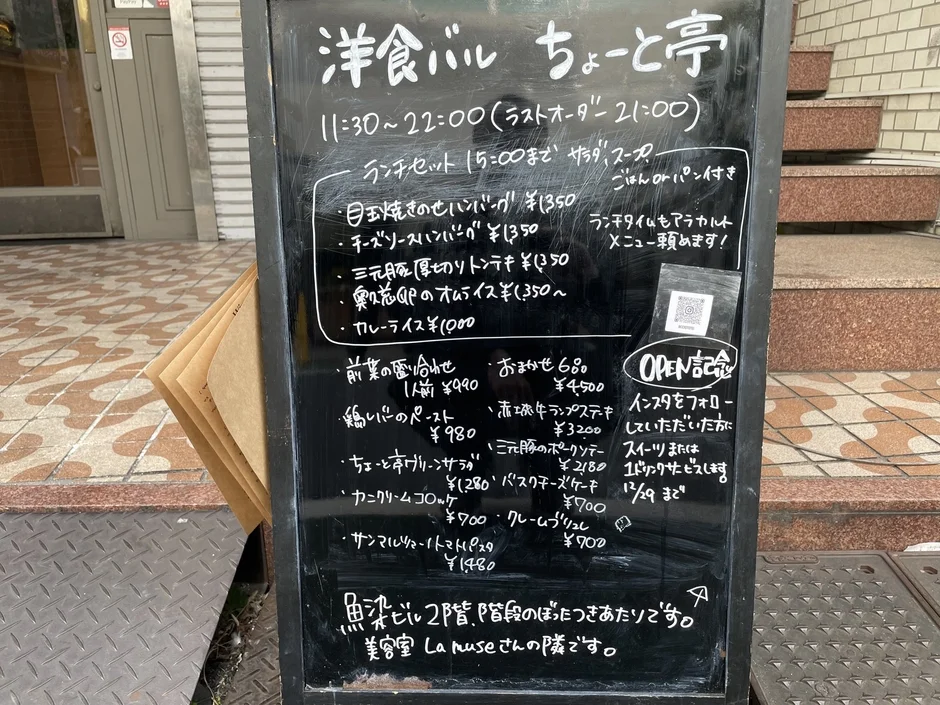 洋食バル ちょーと亭
11:30～22:00(ラストオーダー 21:00)
ランチセット 15:00まで サラダ、スープ、
ごはんorパン付き
・目玉焼きのせハンバーグ ¥1,350
・チーズソースハンバーグ ¥1,350
・三元豚厚切りトンテキ ¥1,350
のオムライス¥1,350～
・カレーライス¥1,000
ランチタイムもアラカルト
メニュー頼めます！
・前菜の盛り合わせ
1人前 ¥990
・鶏レバーのペースト
¥980
・ちょーと亭グリーンサラダ
¥1,280
・カニクリームコロッケ
¥700
・サンマルツァーノトマトパスタ
¥1,480
・おまかせ
¥4,500
・赤城牛ランプステーキ
¥3200
・三元豚のポークソテー
¥2,180
・バスクチーズケーキ
¥700
・クレームブリュレ
¥700
OPEN記念
インスタをフォロー
していただいた方に
スイーツまたは
1ドリンクサービスします。
12/29 まで
魚染ビル2階、階段のぼったつきあたりです。
美容室 La museさんの隣です。